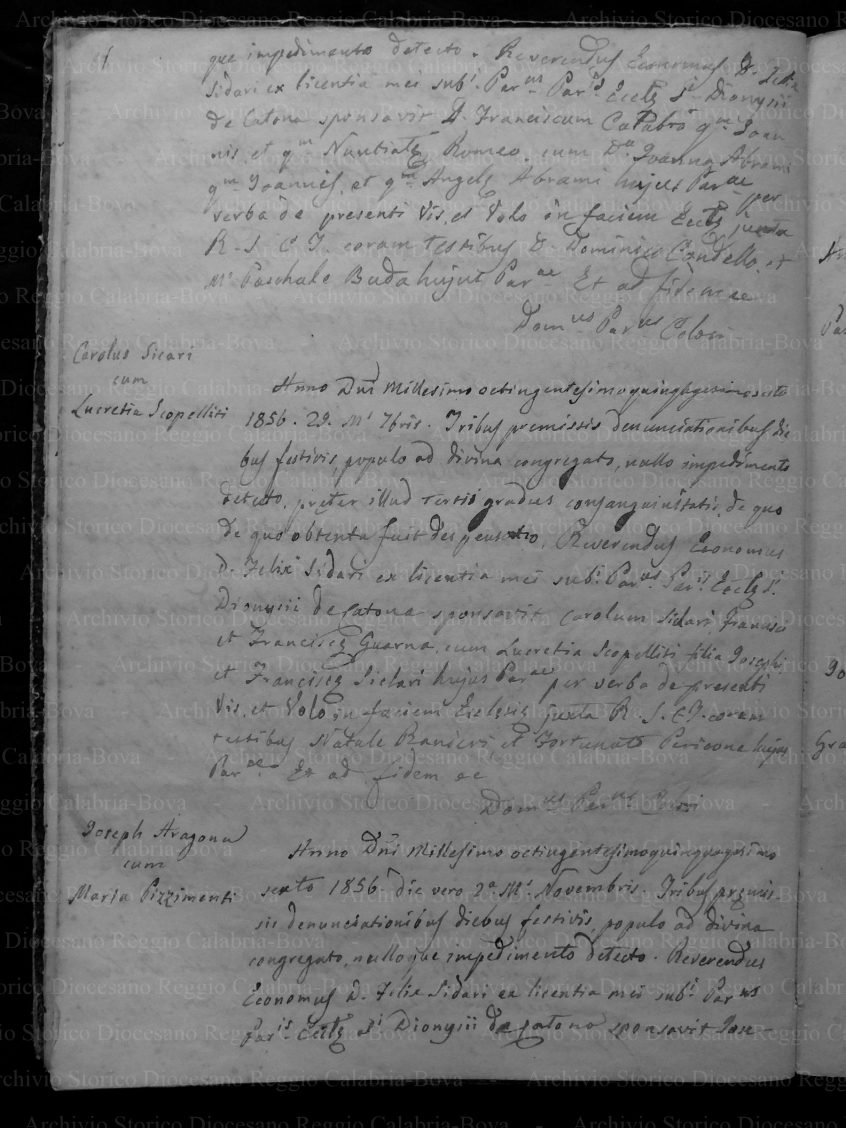 que impedimento detecto. Reverendus Economus D. Felix
Sidari ex licentia mei sub.i Par.us Par.is Eccle S.i Dionysii
de Catona sponsavit D. Franciscum Calabrò q.m Joan
nis, et q.m Nuntiate Romeo, cum D.a Joanna Abrami
q.m Joannis, et q.m Angele Abrami hujus Par.ae per
verba de presenti Vis, et Volo in faciem Eccle juxta
R. S. E. J. coram testibus D. Dominico Condello, et
M.o Paschale Buda hujus Par.ae Et ad fidem ae
Dom.us Par.us Colosi
Carolus Sicari
cum
Lucretia Scopelliti
Anno Dni Millesimo octingentesimo quinquagesimo sexto
1856. 29. M.s 7bris. Tribus premissis denunciationibus die
bus festivis, populo ad divina congregato, nullo impedimento
detecto, preter illud tertii gradus consanguinitatis, de quo
de quo obtenta fuit despensatio, Reverendus Economus
D. Felix Sidari ex licentia mei sub.i Par.us Par.is Eccle S.i
Dionysii de Catona sponsavit Carolum Sidari Francisci
et Francisce Guarna, cum Lucretia Scopelliti filia Josephi
et Francisce Siclari hujus Par.ae per verba de presenti
Vis, et Volo in faciem Ecclesie juxta R. S. E. J. coram
testibus Natale Ranieri et Fortunato Pericone hujus
Par.ae Et ad fidem ae
Dom.us Par.us Colosi
Joseph Aragona
cum
Maria Pizzimenti
Anno Dni Millesimo octingentesimo quinquagesimo
sexto 1856. die vero 2a M.s Novembris. Tribus premis
sis denunciationibus diebus festivis, populo ad divina
congregato, nulloque impedimento detecto. Reverendus
Economus D. Felix Sidari ex licentia mei sub.i Par.us
Par.is Eccle S.i Dionysii de Catona sponsavit Jose-